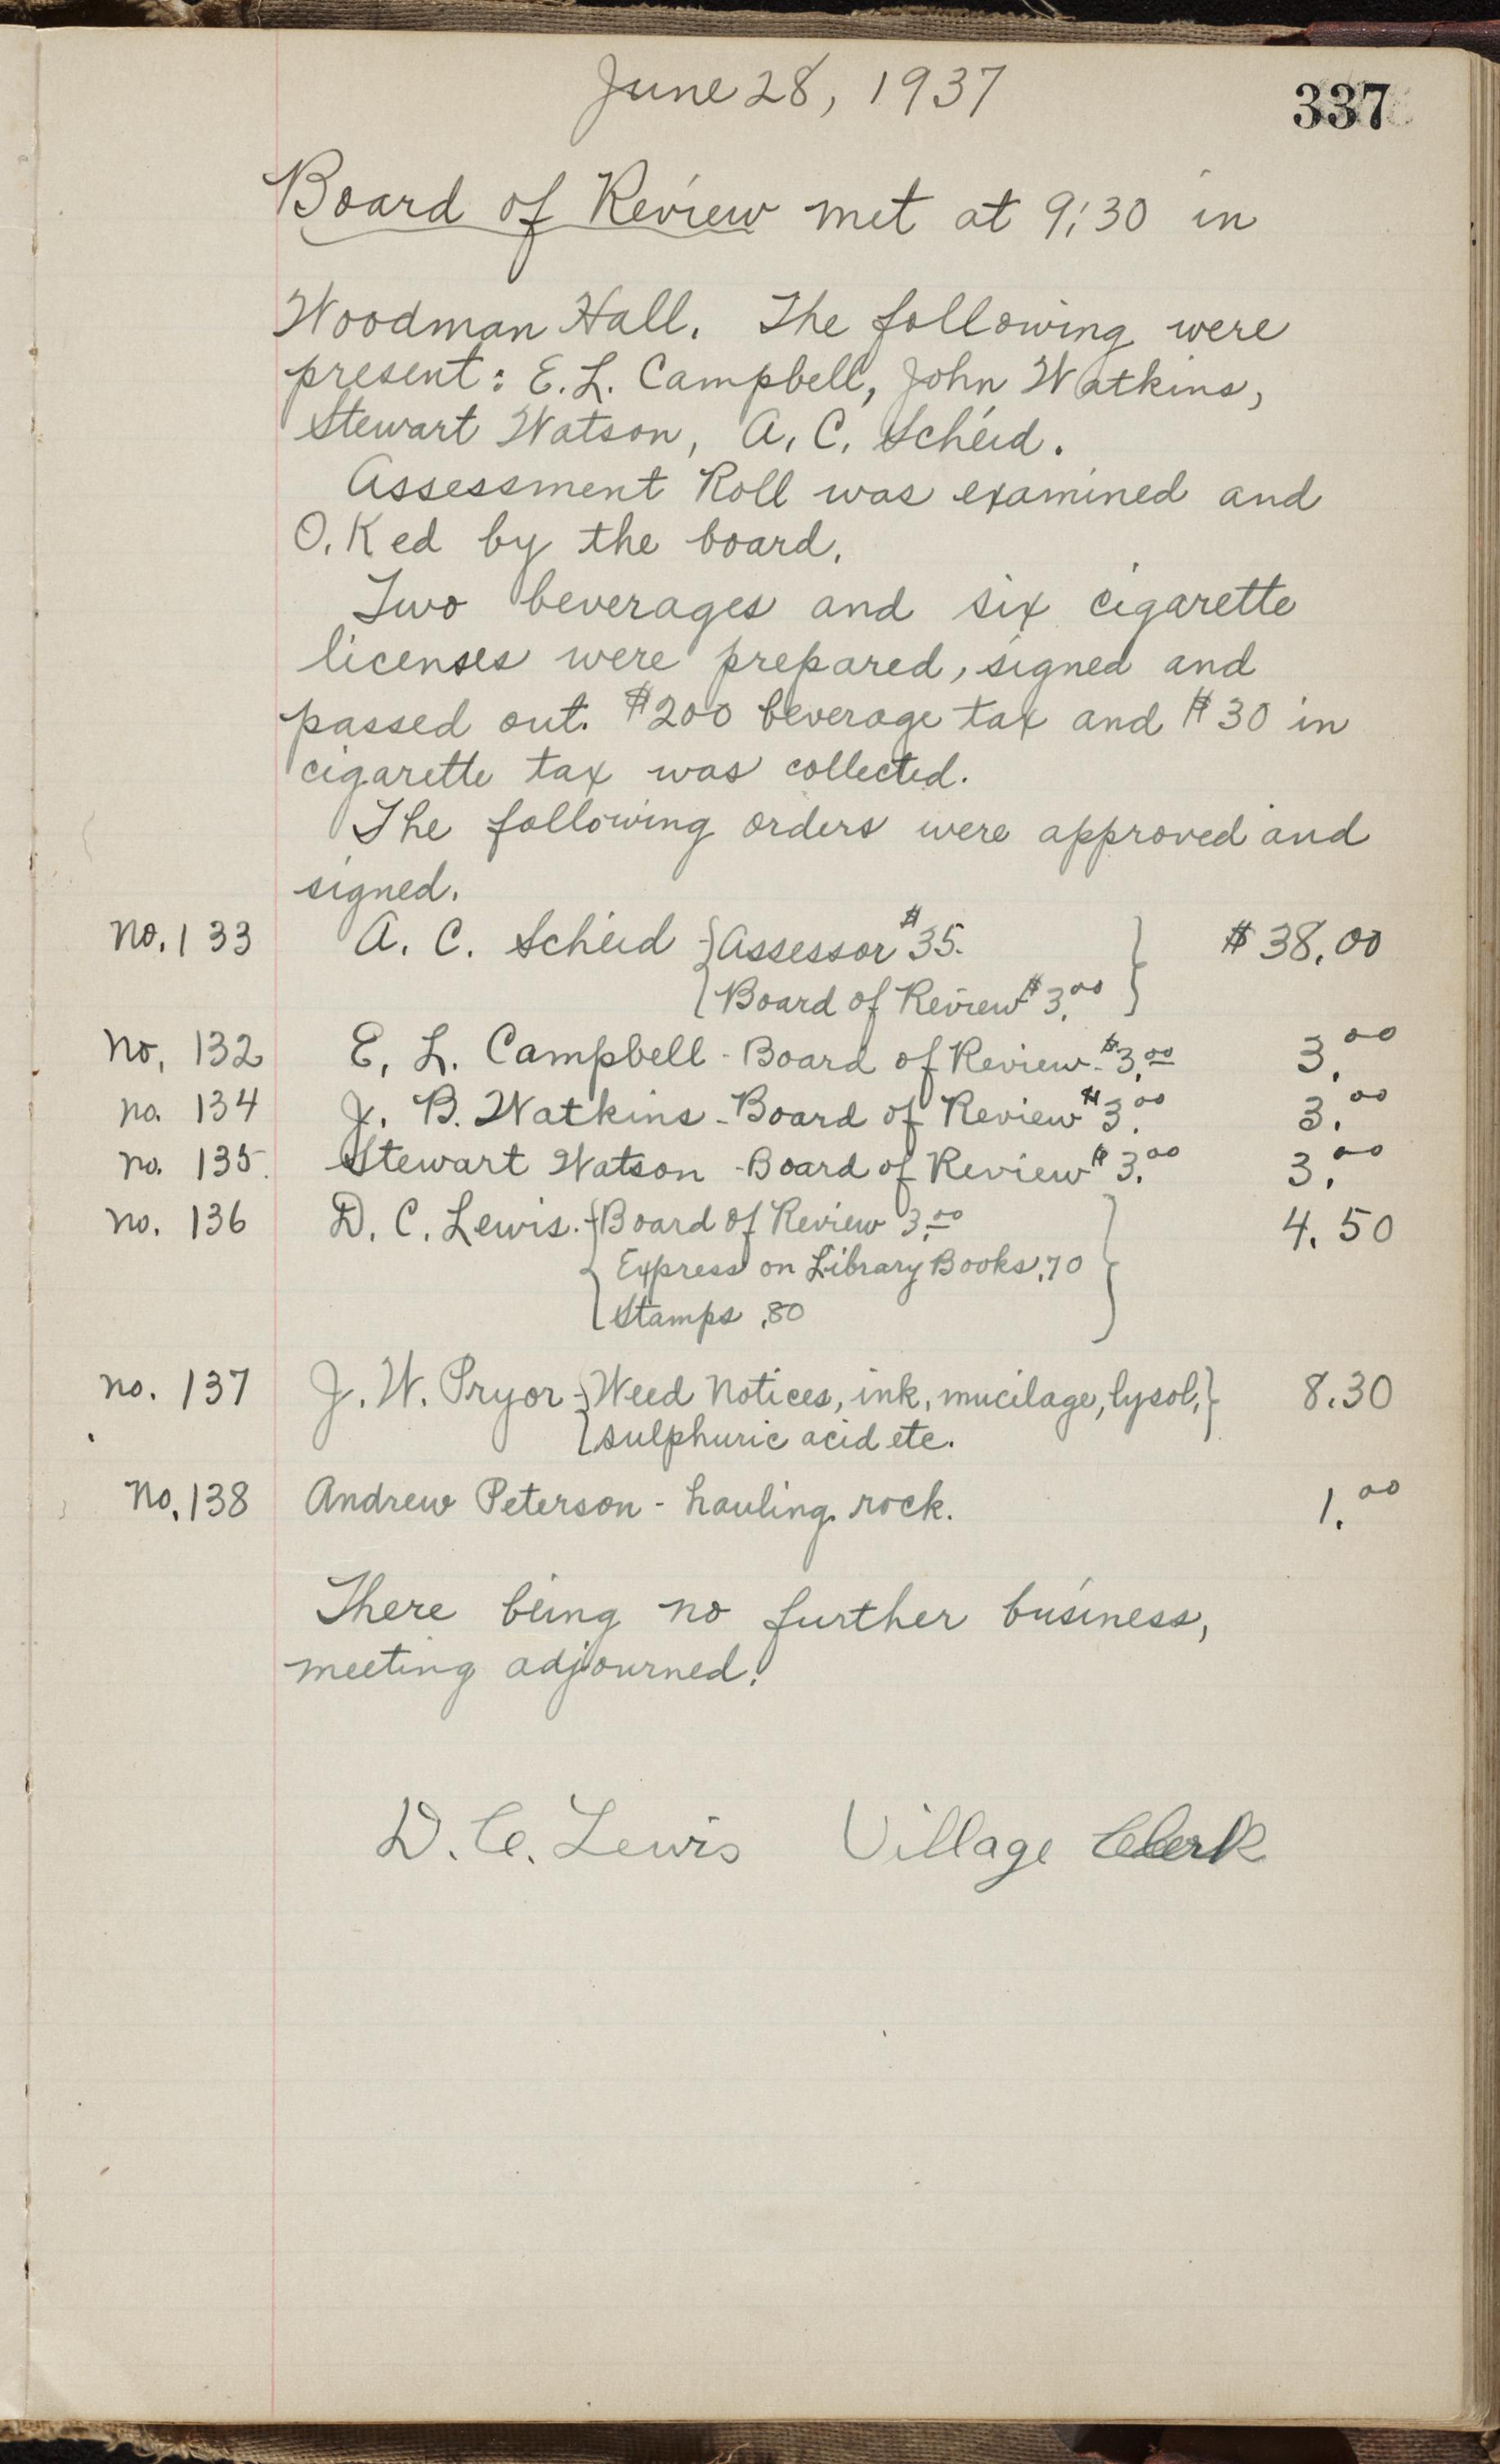 June 28, 1937
337
Board of Review met at 9:30 in
Woodman Hall. The following were
present: E. L. Campbell, John Watkins,
Stewart Watson, A. C. Scheid.
Assessment Roll was examined and
O.K ed by the board.
Two beverages and six cigarette
licenses were prepared, signed and
passed out. $200 beverage tax and $30 in
cigarette tax was collected.
The following orders were approved and
signed.
no. 133 A. C. Scheid { Assessor $35. } $38.00
{ Board of Review $3.00 }
no. 132 E. L. Campbell - Board of Review - $3.00 3.00
no. 134 J. B. Watkins - Board of Review $3.00 3.00
no. 135. Stewart Watson - Board of Review $3.00 3.00
no. 136 D. C. Lewis. - { Board of Review 3.00 } 4.50
{ Express on Library Books .70
{ Stamps .80
no. 137 J. W. Pryor - { Weed Notices, ink, mucilage, lysol, } 8.30
{ sulphuric acid etc.
no. 138 Andrew Peterson - hauling rock. 1.00
There being no further business,
meeting adjourned.
D. C. Lewis Village Clerk